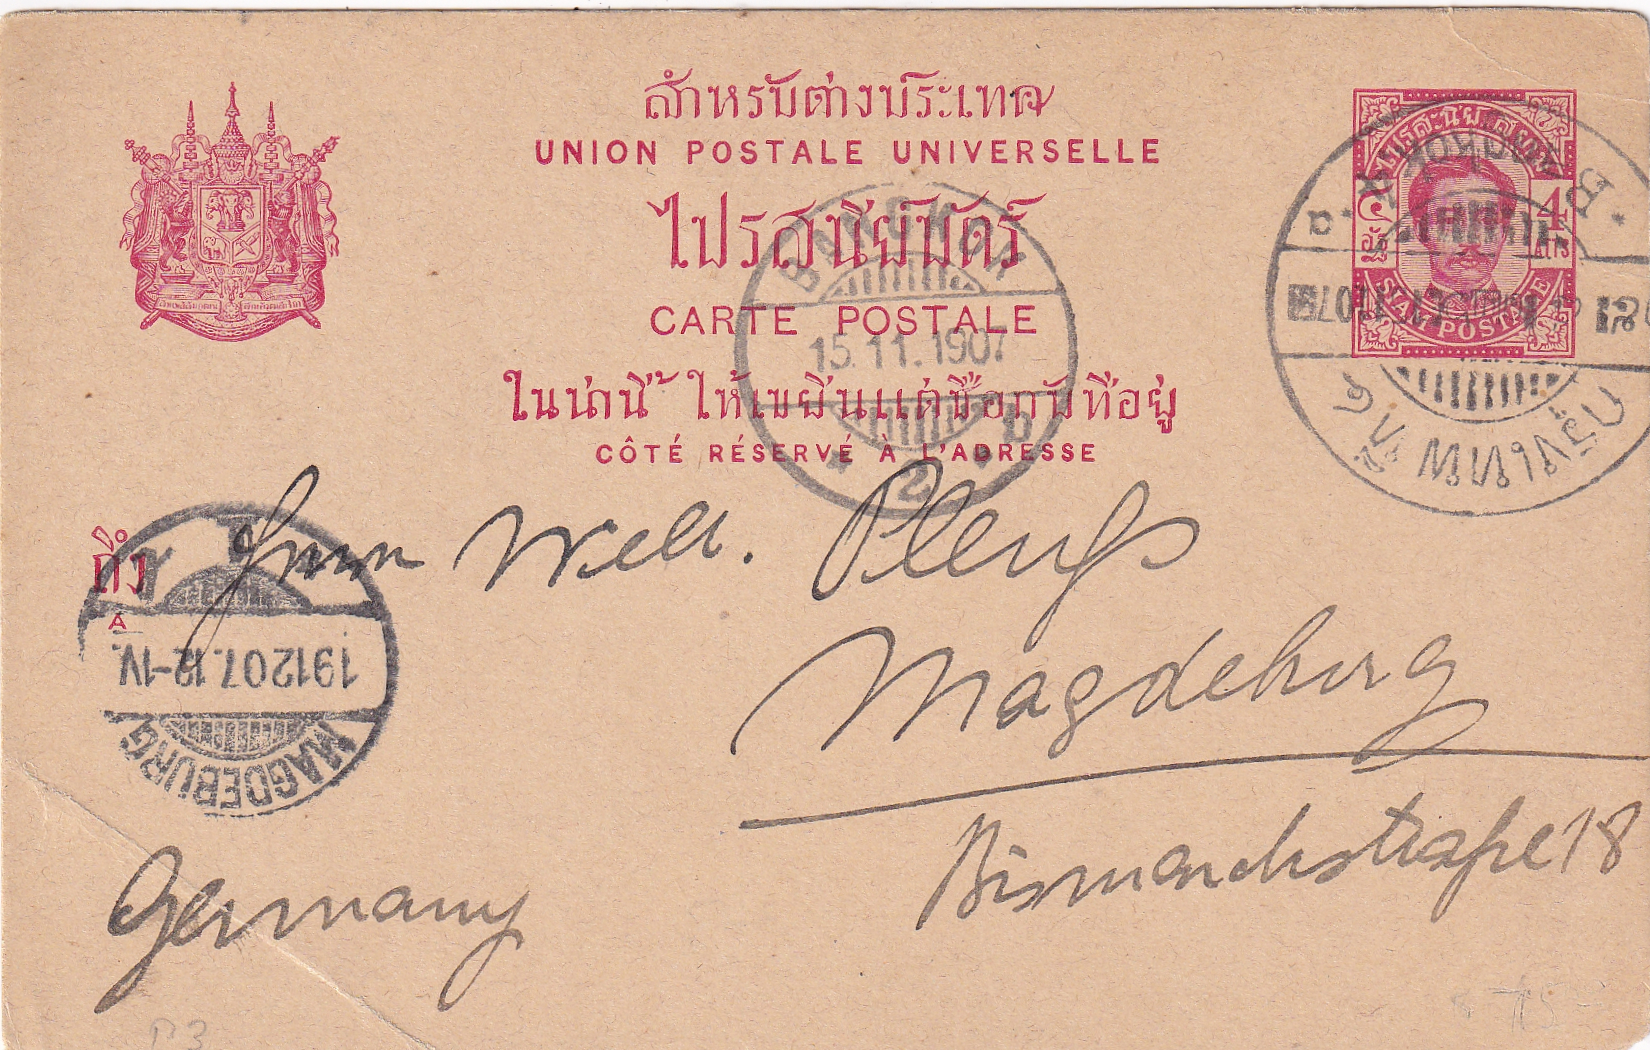 สำหรับต่างประเทศ
UNION POSTALE UNIVERSELLE
ไปรสนีย์บัตร์
CARTE POSTALE
ในน่านี้ ให้เขียนแต่ชื่อกับที่อยู่
CÔTÉ RÉSERVÉ À L'ADRESSE
4
Atts
SIAM POSTAGE
BANGKOK
กรุงเทพ ที่ ๒
BANGKOK
15.11.1907
2
ถึง
A
Herrn Well. Pleugs
Magdeburg
Bismarckstraße 18
Germany
MAGDEBURG
191207.12-1V.
P3